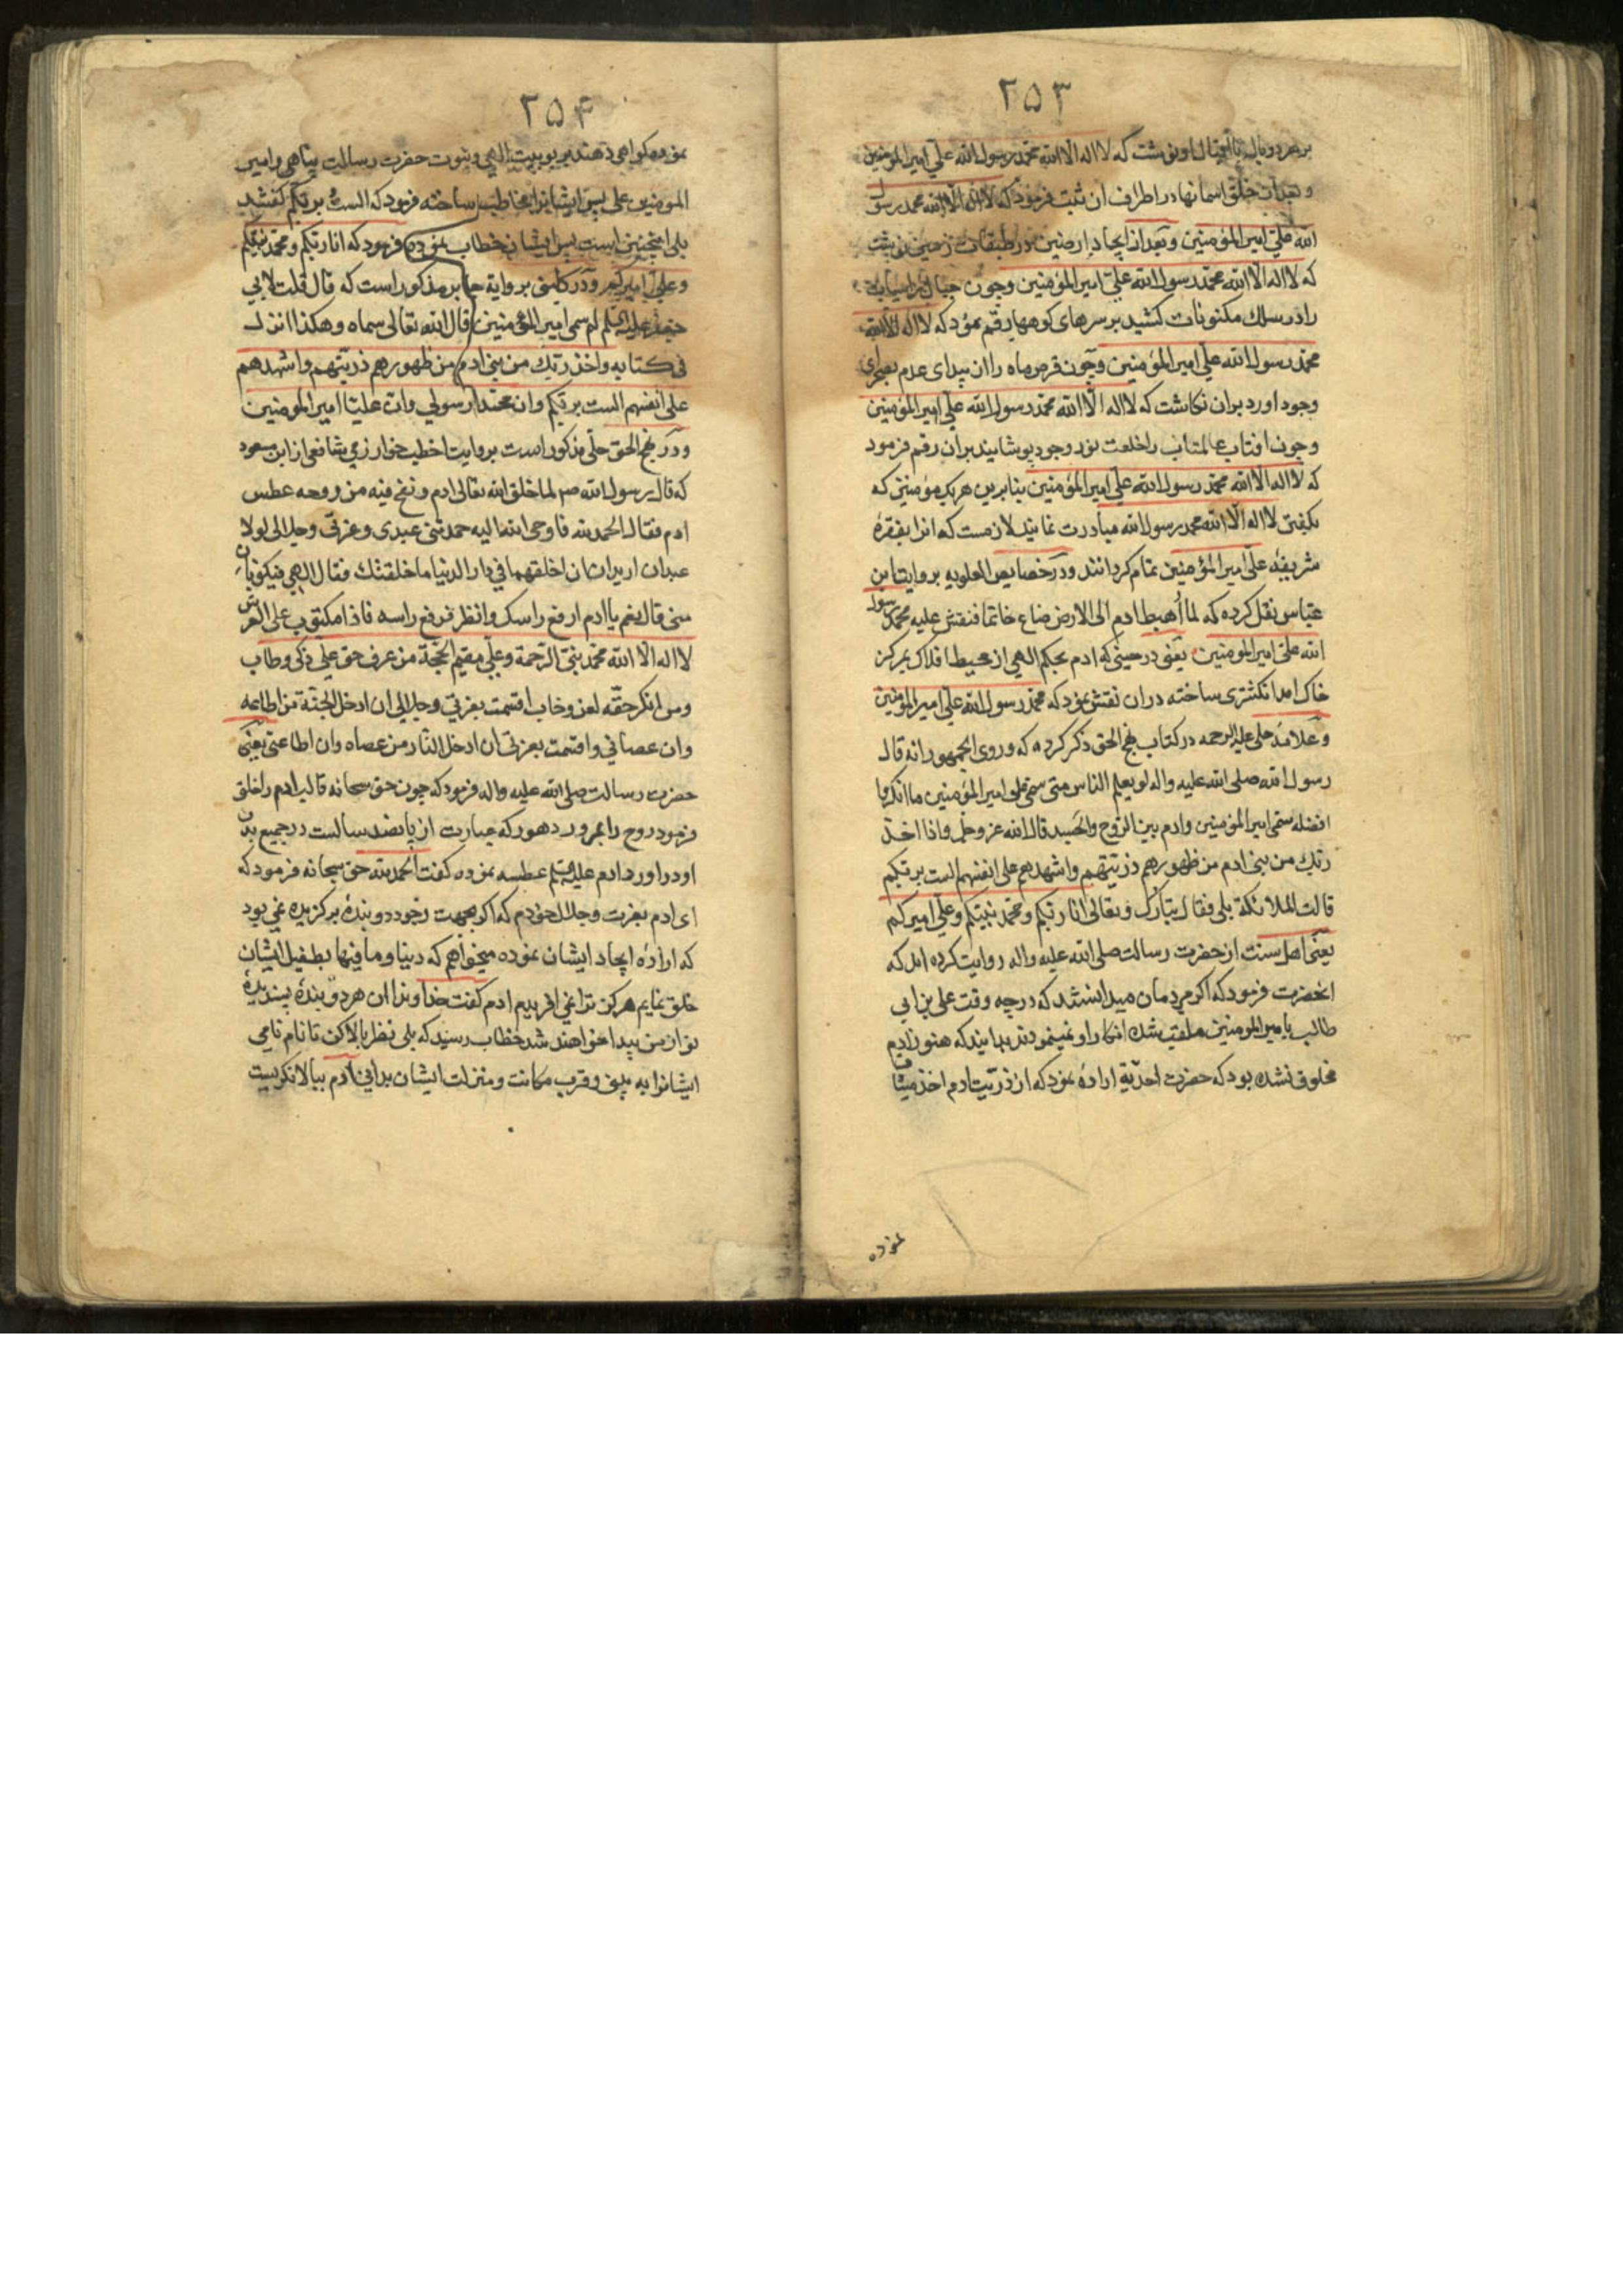 ۲۵۳
بر هر دو بال نوشت که لا اله الا الله محمد رسول الله علی امیر المؤمنین
و بعد از خلق اسمانها در اطراف ان ثبت فرمود که لا اله الا الله محمد رسول
الله علی امیر المؤمنین و بعد از ایجاد ارضین در طبقات زمین نوشت
که لا اله الا الله محمد رسول الله علی امیر المؤمنین وچون جبال
را در سلک مکنونات کشید بر سرهای کوهها رقم نمود که لا اله الا الله
محمد رسول الله علی امیر المؤمنین وچون قرص ماه را از بیدای عدم بصحرای
وجود اورد بران نکاشت که لا اله الا الله محمد رسول الله علی امیر المؤمنین
وچون افتاب عالمتاب را خلعت نور وجود پوشانید بران رقم فرمود
که لا اله الا الله محمد رسول الله علی امیر المؤمنین بنابرین هر یک مؤمنین که
بکفتن لا اله الا الله محمد رسول الله مبادرت نمایند لازمست که انرا بفقرهٔ
شریفهٔ علی امیر المؤمنین تمام کردانند ودر خصایص العلویه بروایت ابن
عباس نقل کرده که لما أهبط ادم الی الارض ضاع خاتما فنقش علیه محمد رسول
الله علی امیر المؤمنین یعنی در حینی که ادم بحکم الهی از محیط افلاک بمرکز
خاک امد انکشتری ساخته دران نقش نمود که محمد رسول الله علی امیر المؤمنین
وعلامهٔ حلی علیه الرحمه در کتاب نهج الحق ذکر کرده که وروی الجمهور انه قال
رسول الله صلی الله علیه واله لو یعلم الناس متی سمی علی امیر المؤمنین ما انکروا
افضله سمی امیر المؤمنین وادم بین الروح والجسد قال الله عز وجل واذا اخذ
ربک من بنی ادم من ظهورهم ذریتهم واشهدهم علی انفسهم الست بربکم
قالت الملائکة بلی فقال تبارک وتعالی انا ربکم ومحمد نبیکم وعلی امیرکم
یعنی اهل سنت از حضرت رسالت صلی الله علیه واله روایت کرده اند که
انحضرت فرمود که اکر مردمان میدانستند که در چه وقت علی بن ابی
طالب بامیر المؤمنین ملقب شده انکار او نمینمودند بدانید که هنوز ادم
مخلوق نشده بود که حضرت احدیة اراده نمود که از ذریت ادم اخذ میثاق
نموده
۲۵۴
نموده کواهی دهند بربوبیت الهی ونبوت حضرت رسالت پناهی وامیر
المؤمنین علی پس ایشانرا مخاطب ساخته فرمود که الست بربکم کفتند
بلی اینچنین است پس ایشان خطاب نموده فرمود که انا ربکم ومحمد نبیکم
وعلی امیرکم ودر کافی بروایة جابر مذکور است که قال قلت لابی
جعفر علیه السلم لم سمی امیر المؤمنین قال الله تعالی سماه وهکذا انزل
فی کتابه واخذ ربک من بنی ادم من ظهورهم ذریتهم واشهدهم
علی انفسهم الست بربکم وان محمدا رسولی وان علیا امیر المؤمنین
ودر نهج الحق حلی مذکور است بروایت اخطب خوارزمی شافعی از ابن مسعود
که قال رسول الله صم لما خلق الله تعالی ادم ونفخ فیه من روحه عطس
ادم فقال الحمد لله فاوحی الله الیه حمدتنی عبدی وعزتی وجلالی لولا
عبدان ارید ان اخلقهما فی دار الدنیا ما خلقتک فقال الهی فیکونان
منی قال نعم یا ادم ارفع راسک وانظر فرفع راسه فاذا مکتوب علی العرش
لا اله الا الله محمد نبی الرحمة وعلی مقیم الحجة من عرف حق علی ذکی وطاب
ومن انکر حقه لعن وخاب اقسمت بعزتی وجلالی ان ادخل الجنة من اطاعه
وان عصانی واقسمت بعزتی ان ادخل النار من عصاه وان اطاعنی یعنی
حضرت رسالت صلی الله علیه واله فرمود که چون حق سبحانه قالب ادم را خلق
فرمود روح را بمرور دهور که عبارت از پانصد سالست در جمیع بدن
او در اورد ادم علیه السلم عطسه نموده کفت الحمد لله حق سبحانه فرمود که
ای ادم بعزت وجلال خودم که اکر بجهت وجود دو بندهٔ برکزیده نمی بود
که ارادهٔ ایجاد ایشان نموده میخواهم که دنیا وما فیها بطفیل ایشان
خلق نمایم هرکز ترا نمی افریدم ادم کفت خداوندا ان هر دو بندهٔ پسندیدهٔ
تو از من پیدا خواهند شد خطاب رسید که بلی نظر ببالا کن تا نام نامی
ایشانرا به بینی وقرب مکانت ومنزلت ایشان بدانی ادم ببالا نکریست